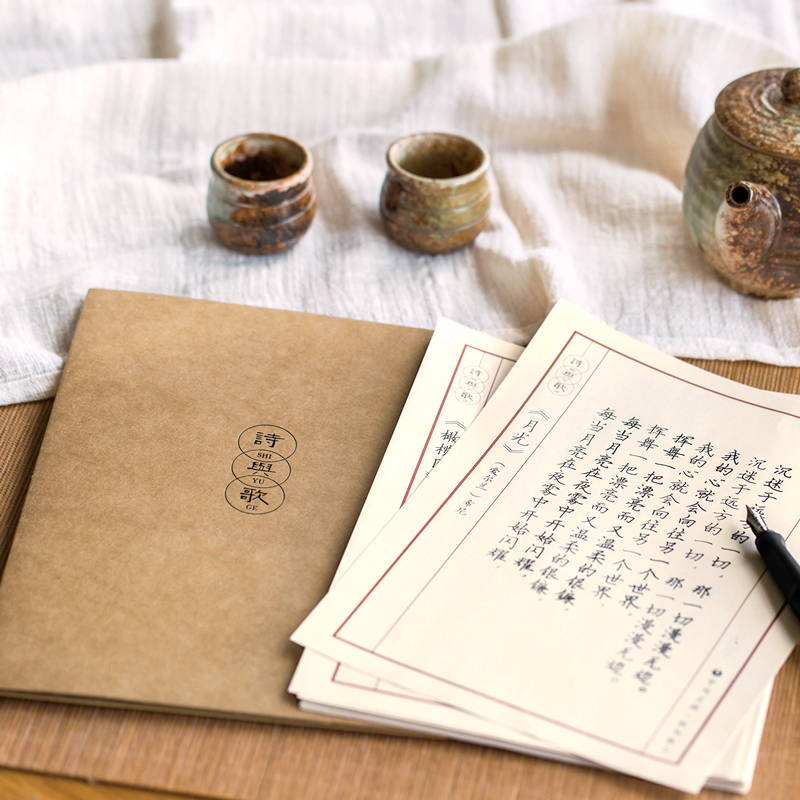 詩
SHI
與
YU
歌
GE
詩
與
歌
詩
與
歌
《月光》
每当月亮在夜雾中开始闪耀,
每当月亮在夜雾中开始闪耀,
挥舞一把漂亮而又温柔的银镰,
挥舞一把漂亮而又温柔的银镰,
我的心就会向往另一个世界,
我的心就会向往另一个世界,
沉迷于远方的一切,那一切漫漫无边。
沉迷于远方的一切,那一切漫漫无边。